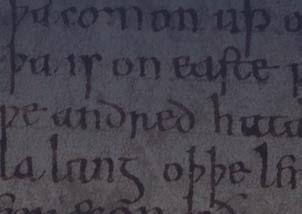 þa comon up
þa is on easte
ƿe andred hata
la lang oþþe